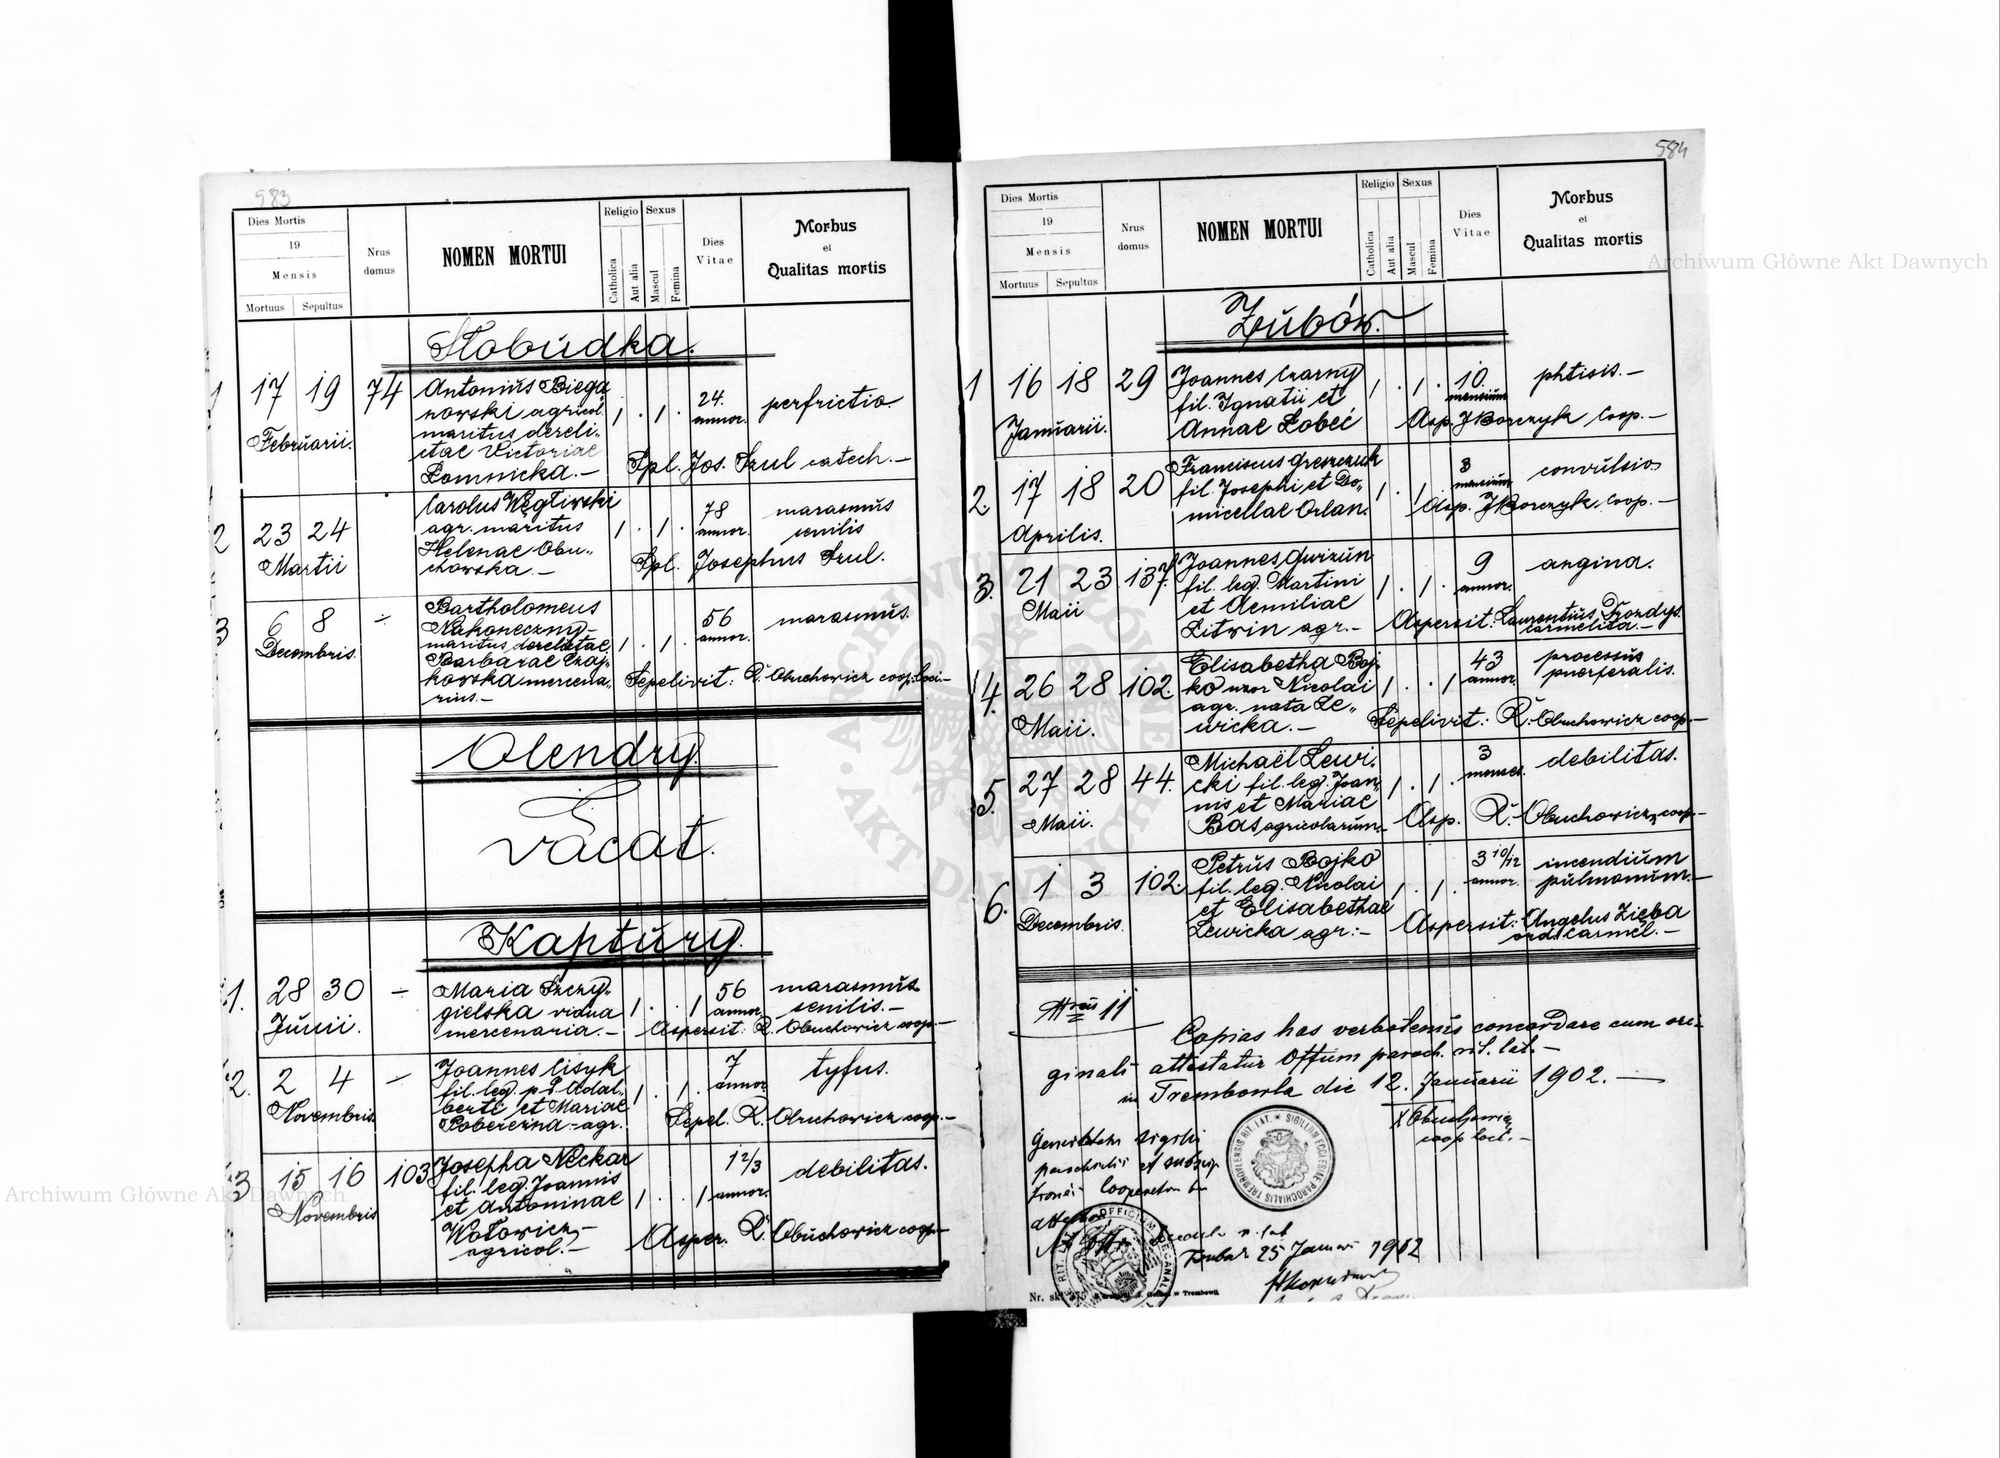 583
Dies Mortis
19
Mensis
Mortuus
Sepultus
Nrus
domus
NOMEN MORTUI
Religio
Catholica
Aut alia
Sexus
Mascul
Femina
Dies
Vitae
Morbus
et
Qualitas mortis
Słobudka.
1 17 19 74
Februarii.
Antonius Biega
nowski agricol.
maritus dereli-
ctae Victoriae
Łomnicka.—
1 . 1 .
24.
annor.
perfrictio.
Spl. Jos. Szul catech.—
2 23 24
Martii
Carolus Węgliwski
agr. maritus
Helenae Obu-
chowska.—
1 . 1 .
78
annor.
marasmus
senilis
Spl. Josephus Szul.
3 6 8 ÷
Decembris.
Bartholomeus
Nakoneczny-
maritus derelictae
Barbarae Czaj-
kowska mercena-
rius.—
1 . 1 .
56
annor.
marasmus.
Sepelivit: R. Obuchowicz coop. loci.—
Olendry.
Vacat.
Kaptury.
1. 28 30 ÷
Junii.
Maria Szczy-
gielska vidua
mercenaria.—
1 . . 1
56
annor.
marasmus
senilis.—
Aspersit: R. Obuchowicz coop.—
2. 2 4 —
Novembris.
Joannes Cisyk
fil. leg. p. d. Adal-
berti et Mariae
Poberezna - agr.
1 . 1 .
7
annor.
tyfus.
Sepel. R. Obuchowicz coop.—
3 15 16 103
Novembris
Josepha Neckar
fil. leg. Joannis
et Antoninae
Wołowicz,—
agricol.—
1 . . 1
1 2/3
annor.
debilitas.
Asper. R. Obuchowicz coop.—
584
Dies Mortis
19
Mensis
Mortuus
Sepultus
Nrus
domus
NOMEN MORTUI
Religio
Catholica
Aut alia
Sexus
Mascul
Femina
Dies
Vitae
Morbus
et
Qualitas mortis
Zubów.
1 16 18 29
Januarii.
Joannes Czarny
fil. Ignatii et
Annae Łobeć
1 . 1 .
10.
mensium
phtisis.—
Asp. J Borczyk Coop.—
2 17 18 20
Aprilis.
Franciscus Greszczuk
fil. Josephi et Do-
micellae Orlan.
1 . 1
3
mensium
convulsio
Asp. J Borczyk, Coop.—
3. 21 23 137.
Maii
Joannes Gwizun
fil. leg. Martini
et Aemiliae
Litwin agr.—
1 . 1 .
9
annor.
angina.
Aspersit: Laurentius
carmelita.—
4. 26 28 102.
Maii.
Elisabetha Boj-
ko uxor Nicolai
agr. nata Le-
wicka.—
1 . . 1
43
annor.
processus
puerperalis.
Sepelivit: R. Obuchowicz coop.—
5. 27 28 44.
Maii.
Michaël Lewi-
cki fil. leg. Joan-
nis et Mariae
Bas agricolarum.—
1 . 1 .
3
menses.
debilitas.
Asp. R. Obuchowicz, coop.—
6. 1 3 102.
Decembris.
Petrus Bojko
fil. leg. Nicolai
et Elisabethae
Lewicka agr:—
1 . 1 .
3 10/12
annor.
incendium
pulmonum.—
Aspersit: Angelus Zięba
ord. Carmel.—
Nrus 11
Copias has verbotenus concordare cum ori-
ginali attestatur Offium paroch. rit. lat.—
in Trembowla die 12. Januarii 1902.—
X Obuchowicz
coop loci.—
SIGILLUM ECCLESIAE PAROCHIALIS TREMBOVLENSIS RIT. LAT.
sigilli
parochialis et
Cooperatoris
25 1912
Nr. skł. 375
w Trembowli.
Archiwum Główne Akt Dawnych
Archiwum Główne Akt Dawnych
ARCHIWUM GŁÓWNE AKT DAWNYCH